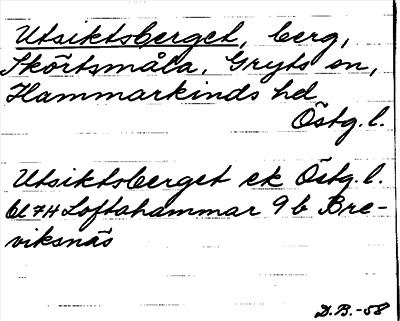 Utsiktsberget, berg,
Skörtsmåla, Gryts sn,
Hammarkinds hd
Östg. l.
Utsiktsberget ek Östg. l.
bl 7H Loftahammar 9b Bre-
viksnäs
D.B.-58